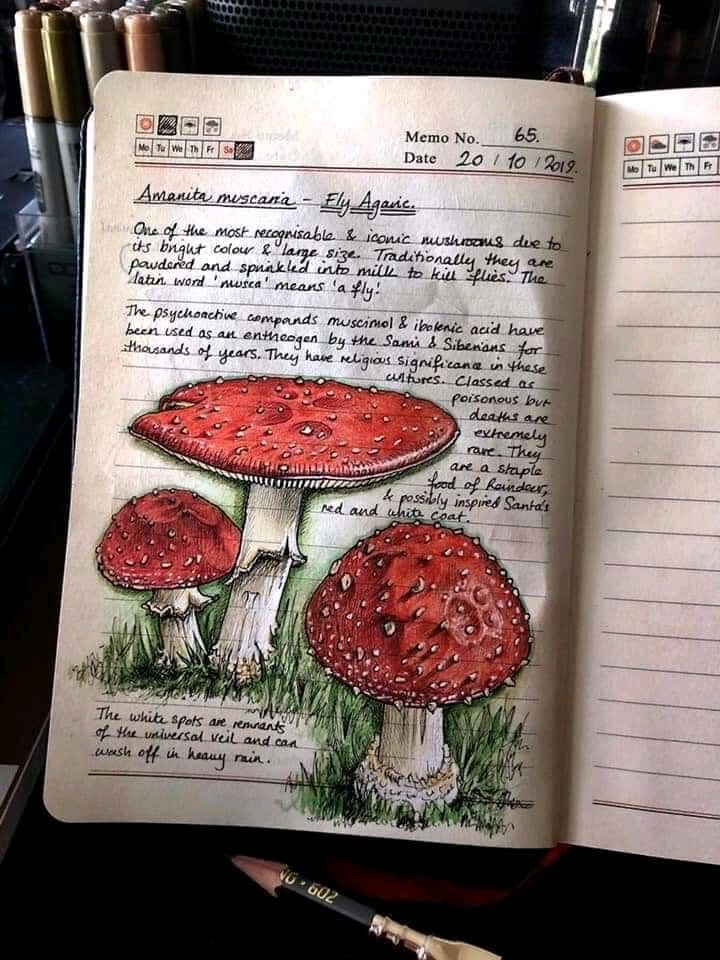 Memo No. 65.
Mo Tu We Th Fr Sa
Date 20 / 10 / 2019.
Mo Tu We Th Fr
Amanita muscaria - Fly Agaric.
One of the most recognisable & iconic mushrooms due to
its bright colour & large size. Traditionally they are
powdered and sprinkled into milk to kill flies. The
latin word 'musca' means 'a fly'.
The psychoactive compounds muscimol & ibotenic acid have
been used as an entheogen by the Sami & Siberians for
thousands of years. They have religious significance in these
cultures. Classed as
poisonous but
deaths are
extremely
rare. They
are a staple
food of Reindeer,
& possibly inspired Santa's
red and white coat.
The white spots are remnants
of the universal veil and can
wash off in heavy rain.
NG • 602